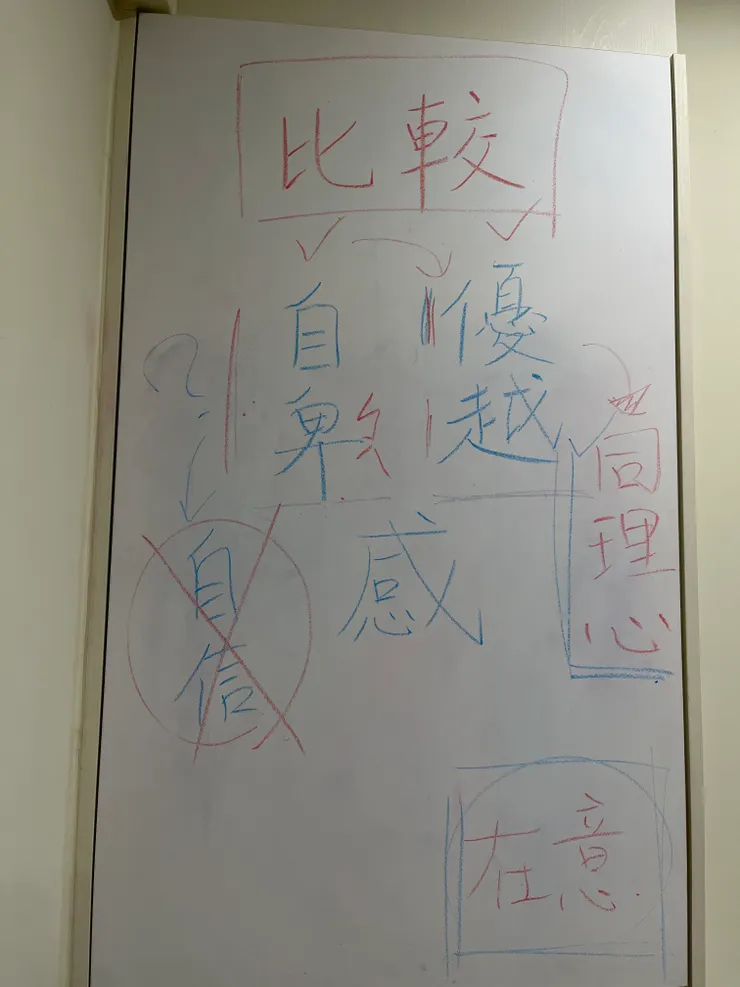 比較
自卑
優越
感
同理心
?
自信
在意